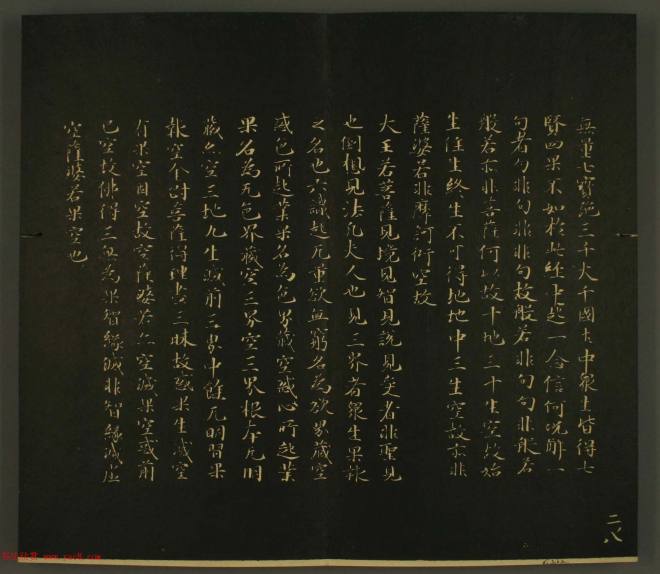 無量七寶施三千大千國土中眾生皆得七
賢四果不如於此経中起一念信何況解一
句者句非句非非句故般若非句句非般若
般若亦非菩薩何以故十地三十生空故始
生住生終生不可得地地中三生空故亦非
薩婆若非摩訶衍空故
大王若菩薩見境見智見說見受者非聖見
也倒想見法凡夫人也見三界者眾生果報
之名也六識起无量欲無窮名為欲界藏空
惑色所起業果名為色界藏空惑心所起業
果名為无色界藏空三界空三界根本无明
藏亦空三地九生滅前三界中餘无明習果
報空金剛菩薩得理盡三昧故惑果生滅空
有果空因空故空薩婆若亦空滅果空或前
已空故佛得三無為果智緣滅非智緣滅虛
空薩婆若果空也
二八
www.yac8.com